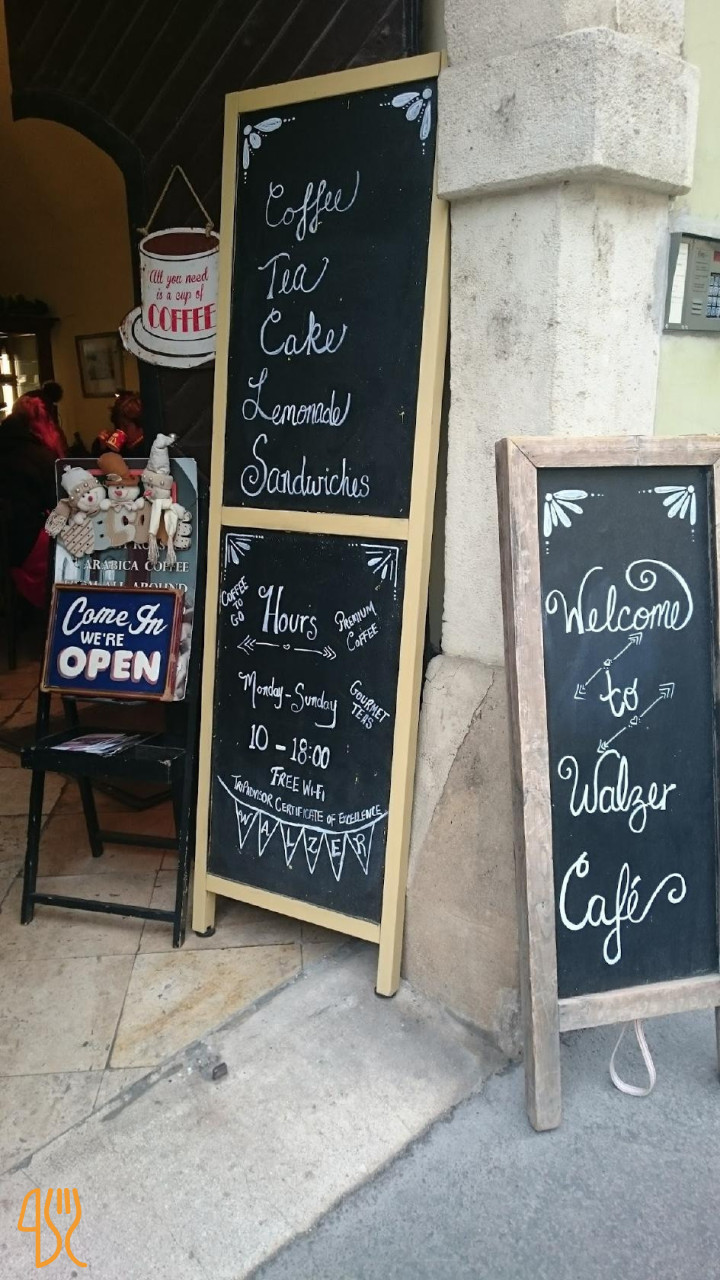 Coffee
Tea
Cake
Lemonade
Sandwiches
All you need
is a cup of
COFFEE
ARABICA COFFEE
ALL AROUND
Come In
WE'RE
OPEN
COFFEE
TO
GO
Hours
PREMIUM
COFFEE
Monday-Sunday
GOURMET
TEAS
10-18:00
FREE Wi-Fi
TRIPADVISOR CERTIFICATE OF EXCELLENCE
WALZER
Welcome
to
Walzer
Café